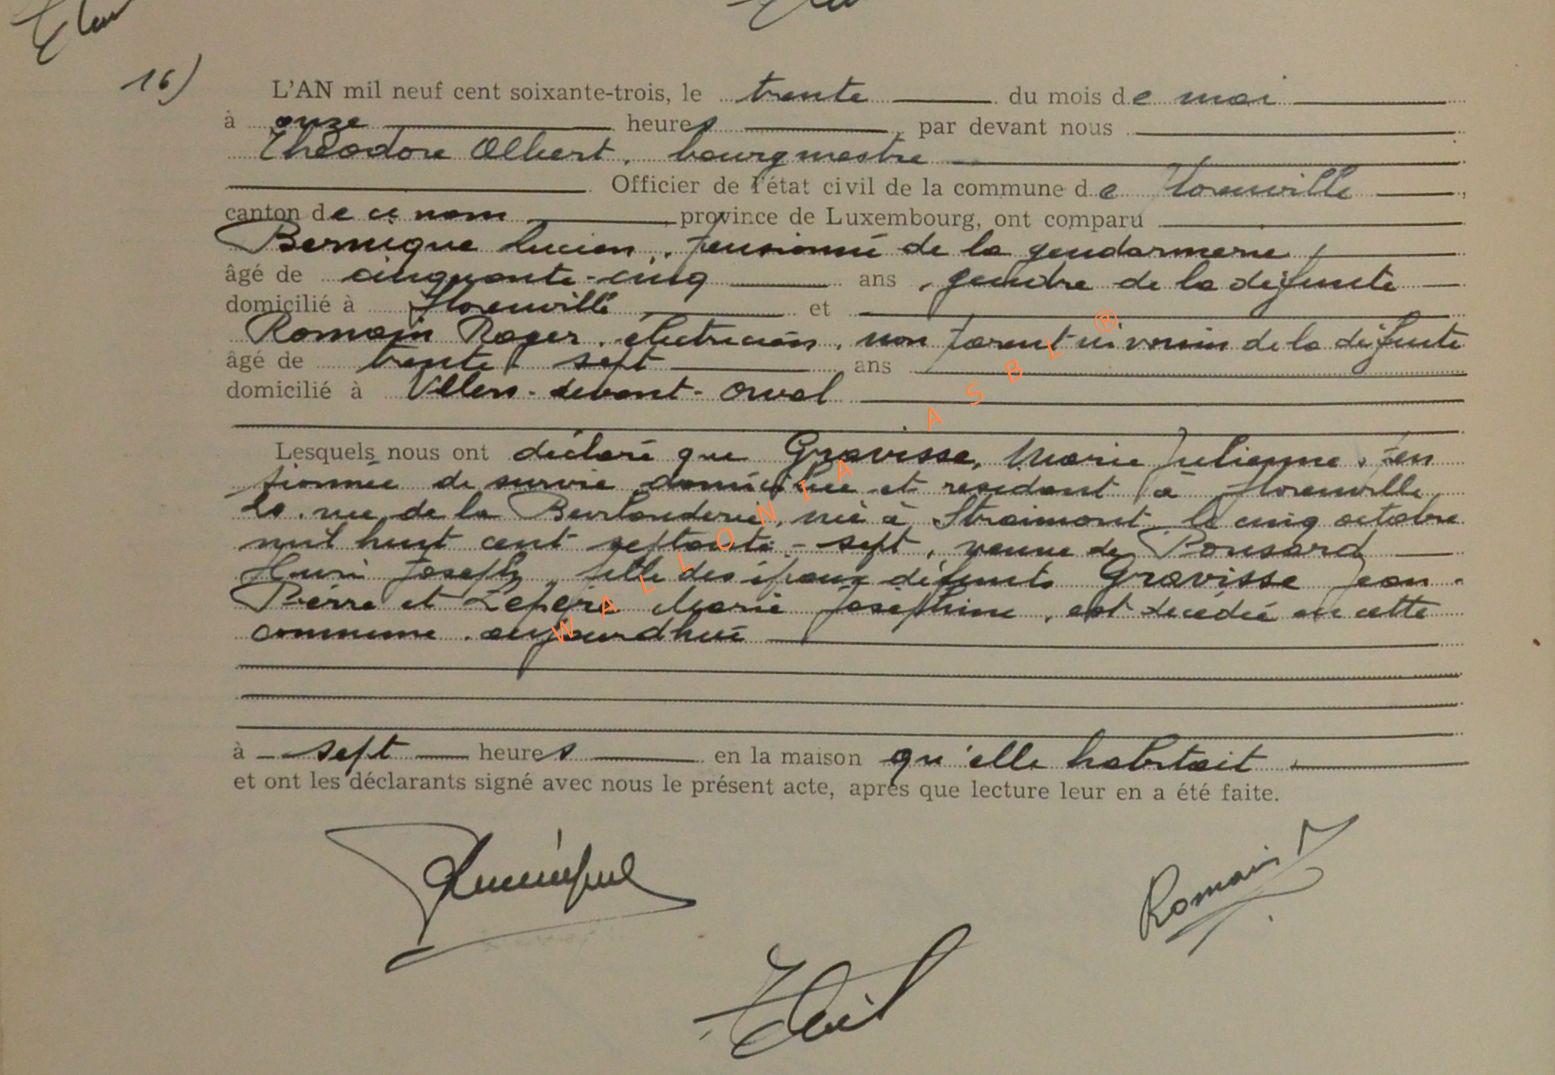 16)
L'AN mil neuf cent soixante-trois, le trente du mois de mai
à onze heures, par devant nous
Théodore Albert, bourgmestre
Officier de l'état civil de la commune de Florenville,
canton de ce nom province de Luxembourg, ont comparu
Bernique Lucien, pensionné de la gendarmerie,
âgé de cinquante-cinq ans, gendre de la défunte
domicilié à Florenville et
Romain Roger, électricien, non parent ni voisin de la défunte
âgé de trente sept ans
domicilié à Villers-devant-Orval
Lesquels nous ont déclaré que Gravisse, Marie Julienne, pen
sionnée de survie domiciliée et résidant à Florenville
20, rue de la née à Straimont le cinq octobre
mil huit cent septante-sept, veuve de Ponsard
Henri Joseph, fille des époux défunts Gravisse Jean-
Pierre et Marie Joséphine, est décédée en cette
commune, aujourd'hui
à sept heures en la maison qu'elle habitait.
et ont les déclarants signé avec nous le présent acte, après que lecture leur en a été faite.
Romain
WALLONIA ASBL®